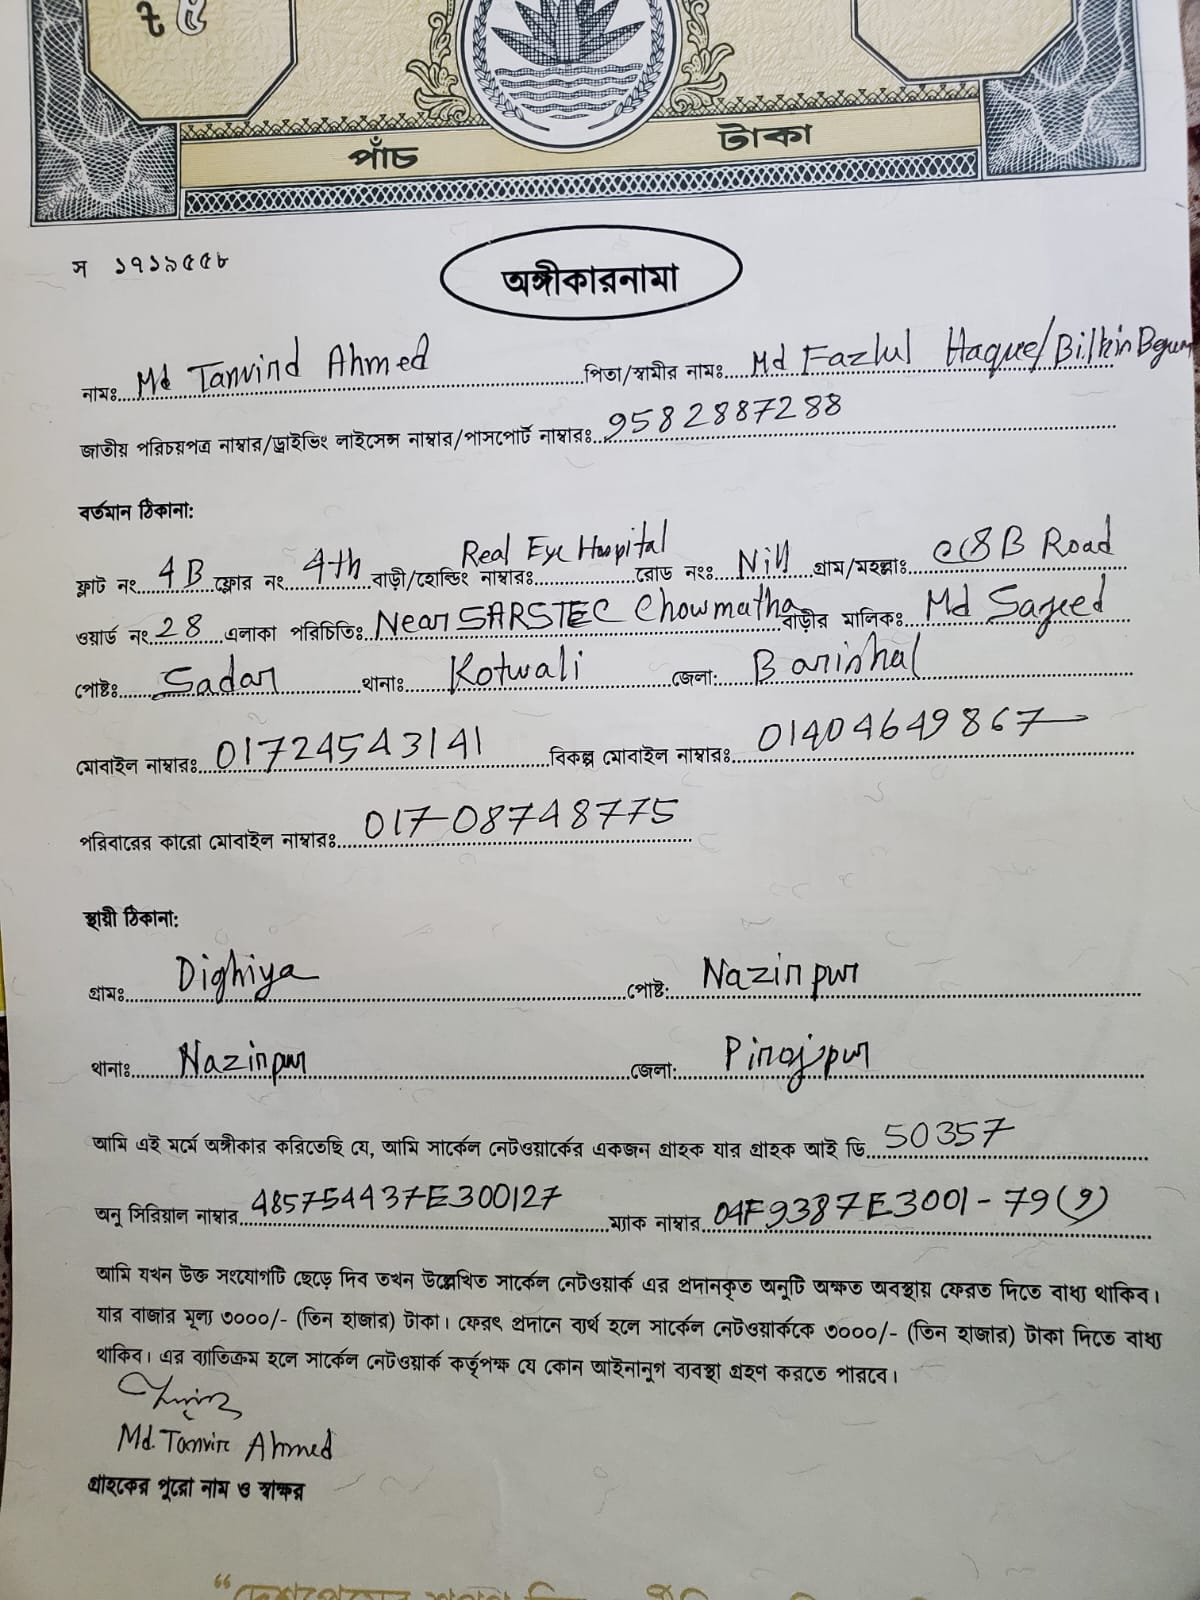 ৳ ৫
পাঁচ টাকা
স ১৭১৯৫৫৮
অঙ্গীকারনামা
নামঃ Md Tanvird Ahmed পিতা/স্বামীর নামঃ Md Fazlul Haque/Bilkin Begum
জাতীয় পরিচয়পত্র নাম্বার/ড্রাইভিং লাইসেন্স নাম্বার/পাসপোর্ট নাম্বারঃ 9582887288
বর্তমান ঠিকানা:
ফ্লাট নং 4B ফ্লোর নং 4th বাড়ী/হোল্ডিং নাম্বারঃ Real Eye Hospital রোড নংঃ Nill গ্রাম/মহল্লাঃ C&B Road
ওয়ার্ড নং 28 এলাকা পরিচিতিঃ Near SARSTEC Chowmatha বাড়ীর মালিকঃ Md Sayeed
পোষ্টঃ Sadar থানাঃ Kotwali জেলা: Barishal
মোবাইল নাম্বারঃ 01724543141 বিকল্প মোবাইল নাম্বারঃ 01404649867
পরিবারের কারো মোবাইল নাম্বারঃ 01708748775
স্থায়ী ঠিকানা:
গ্রামঃ Dighiya পোষ্ট: Nazirpur
থানাঃ Nazirpur জেলা: Pirojpur
আমি এই মর্মে অঙ্গীকার করিতেছি যে, আমি সার্কেল নেটওয়ার্কের একজন গ্রাহক যার গ্রাহক আই ডি 50357
অনু সিরিয়াল নাম্বার 485754437E300127 ম্যাক নাম্বার 04F9387E3001-79(9)
আমি যখন উক্ত সংযোগটি ছেড়ে দিব তখন উল্লেখিত সার্কেল নেটওয়ার্ক এর প্রদানকৃত অনুটি অক্ষত অবস্থায় ফেরত দিতে বাধ্য থাকিব।
যার বাজার মূল্য ৩০০০/- (তিন হাজার) টাকা। ফেরৎ প্রদানে ব্যর্থ হলে সার্কেল নেটওয়ার্ককে ৩০০০/- (তিন হাজার) টাকা দিতে বাধ্য
থাকিব। এর ব্যাতিক্রম হলে সার্কেল নেটওয়ার্ক কর্তৃপক্ষ যে কোন আইনানুগ ব্যবস্থা গ্রহণ করতে পারবে।
Md. Tanvir Ahmed
গ্রাহকের পুরো নাম ও স্বাক্ষর